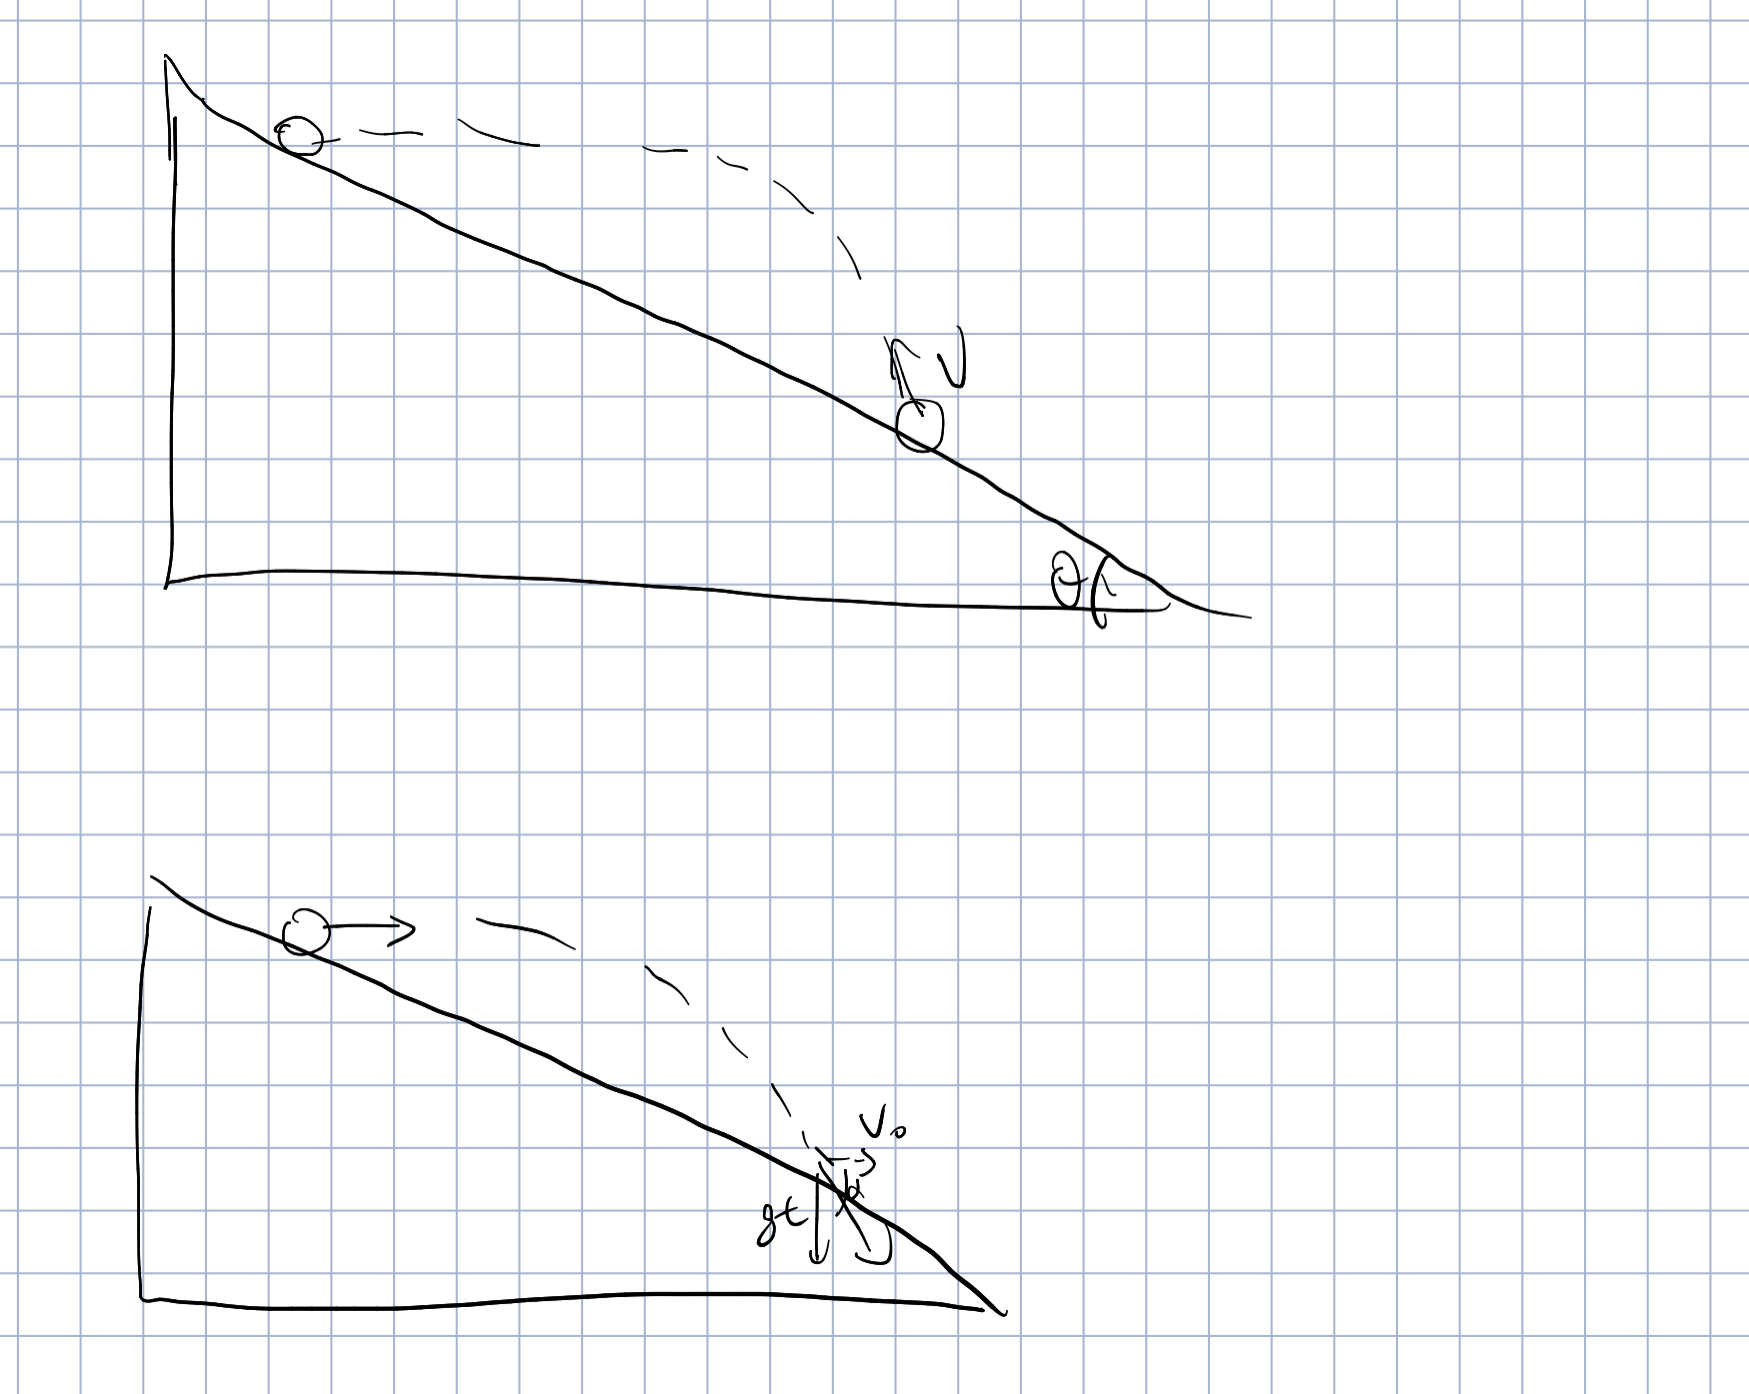 V
θ
V₀
α
gt